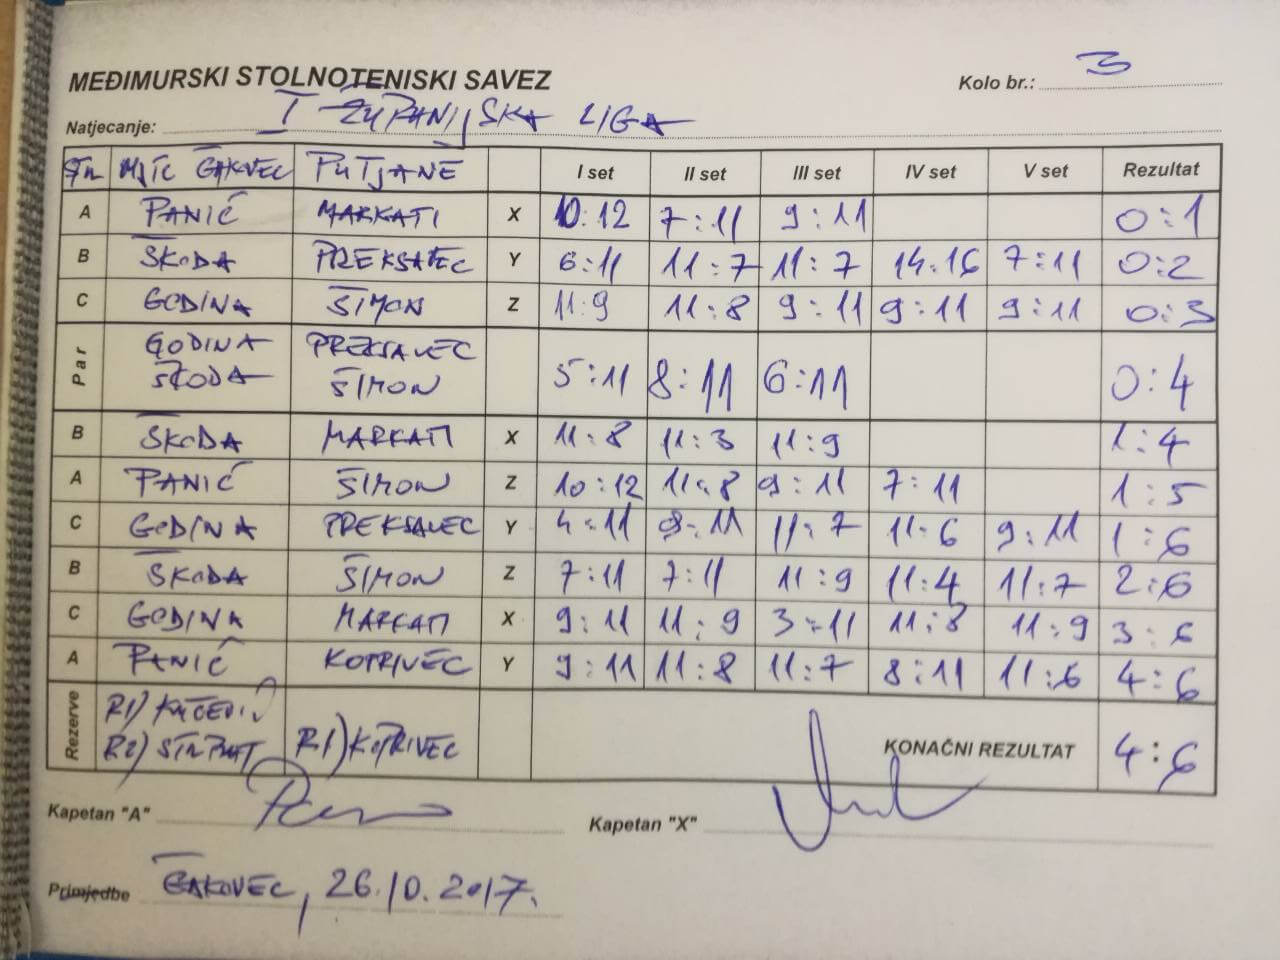 MEĐIMURSKI STOLNOTENISKI SAVEZ
Kolo br.: 3
Natjecanje: I ŽUPANIJSKA LIGA
MSTC ČAKOVEC PUTJANE I set II set III set IV set V set Rezultat
A PANIĆ MARKATI X 10:12 7:11 9:11 0:1
B ŠKODA PREKSAVEC Y 6:11 11:7 11:7 14:16 7:11 0:2
C GODINA ŠIMON Z 11:9 11:8 9:11 9:11 9:11 0:3
Par GODINA PREKSAVEC
ŠKODA ŠIMON 5:11 8:11 6:11 0:4
B ŠKODA MARKATI X 11:8 11:3 11:9 1:4
A PANIĆ ŠIMON Z 10:12 11:8 9:11 7:11 1:5
C GODINA PREKSAVEC Y 4:11 9:11 11:7 11:6 9:11 1:6
B ŠKODA ŠIMON Z 7:11 7:11 11:9 11:4 11:7 2:6
C GODINA MARKATI X 9:11 11:9 3:11 11:8 11:9 3:6
A PANIĆ KOPRIVEC Y 9:11 11:8 11:7 8:11 11:6 4:6
Rezerve R1)
R2) R1) KOPRIVEC KONAČNI REZULTAT 4:6
Kapetan "A" Kapetan "X"
Primjedbe ČAKOVEC, 26.10.2017.